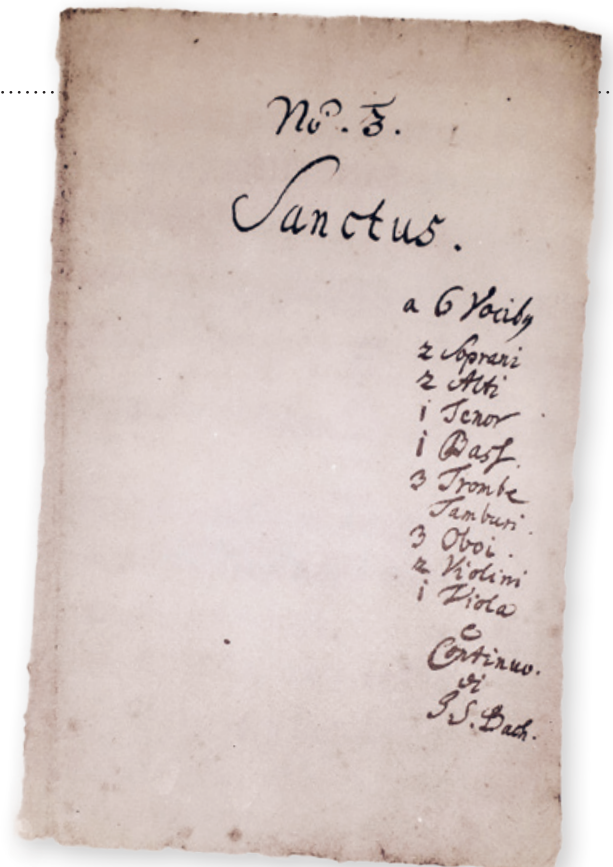 No. 3.
Sanctus.
a 6 Vocibg
2 Soprani
2 Alti
i Tenor
i Bass.
3 Trombe
Tamburi.
3 Oboi.
2 Violini
i Viola
e
Continuo.
di
J S. Bach.